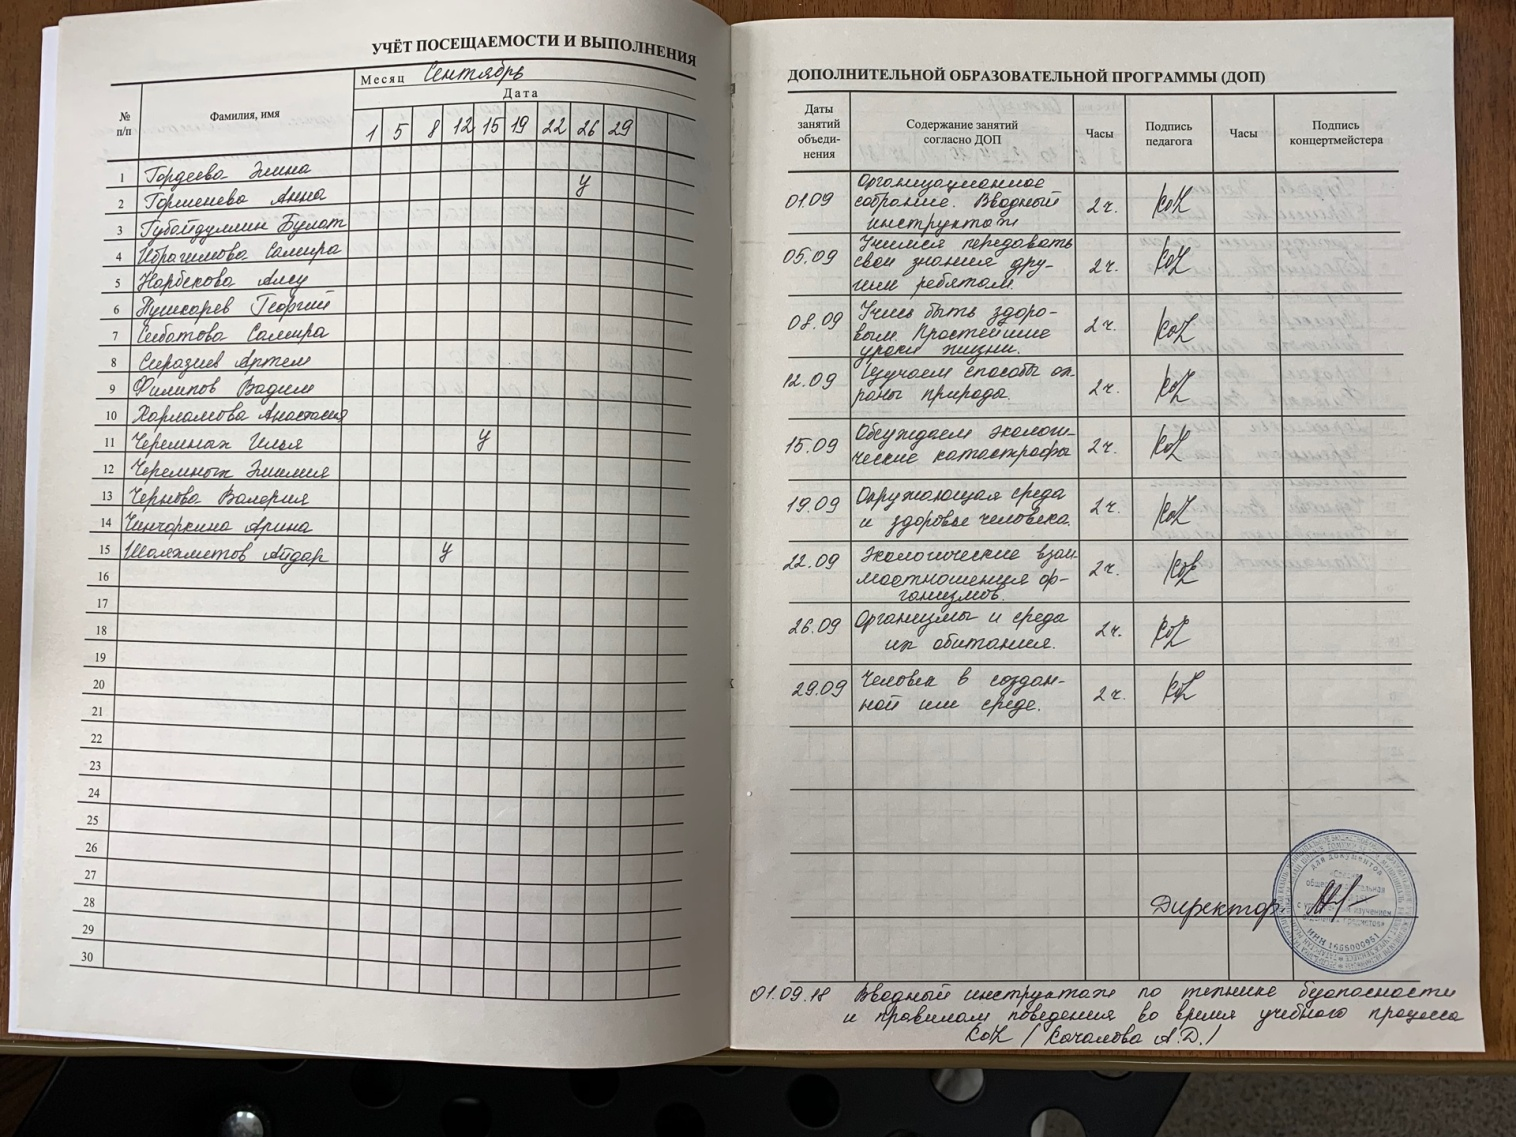 УЧЁТ ПОСЕЩАЕМОСТИ И ВЫПОЛНЕНИЯ
№ п/п
Фамилия, имя
Месяц Сентябрь
Дата
1 5 8 12 15 19 22 26 29
1 Гордеева Элина
2 Горшенева Анна у
3 Губайдуллин Булат
4 Ибрагимова Самира
5 Нарбекова Алсу
6 Пушкарев Георгий
7 Сабитова Самира
8 Сиразиев Артем
9 Филипов Вадим
10 Харламова Анастасия
11 Черемных Илья у
12 Черемных Эмилия
13 Чернова Валерия
14 Чинчаркина Арина
15 Шахаметов Айдар у
16
17
18
19
20
21
22
23
24
25
26
27
28
29
30
ДОПОЛНИТЕЛЬНОЙ ОБРАЗОВАТЕЛЬНОЙ ПРОГРАММЫ (ДОП)
Даты
занятий
объеди-
нения
Содержание занятий
согласно ДОП
Часы
Подпись
педагога
Часы
Подпись
концертмейстера
01.09 Организационное
собрание. Вводный 2ч.
инструктаж
05.09 Учимся передавать
свои знания дру- 2ч.
гим ребятам.
08.09 Учись быть здоро-
вым. Простейшие 2ч.
уроки жизни.
12.09 Изучаем способы ох-
раны природа. 2ч.
15.09 Обсуждаем экологи-
ческие катастрофы 2ч.
19.09 Окружающая среда
и здоровье человека. 2ч.
22.09 Экологические взаи
моотношения ор- 2ч.
ганизмов.
26.09 Организмы и среда
их обитания. 2ч.
29.09 Человек в создан-
ной им среде. 2ч.
Директор
для документов
ИНН 1655000951
01.09.18 Вводный инструктаж по технике безопасности
и правилам поведения во время учебного процесса
/ Качалова А.Д./